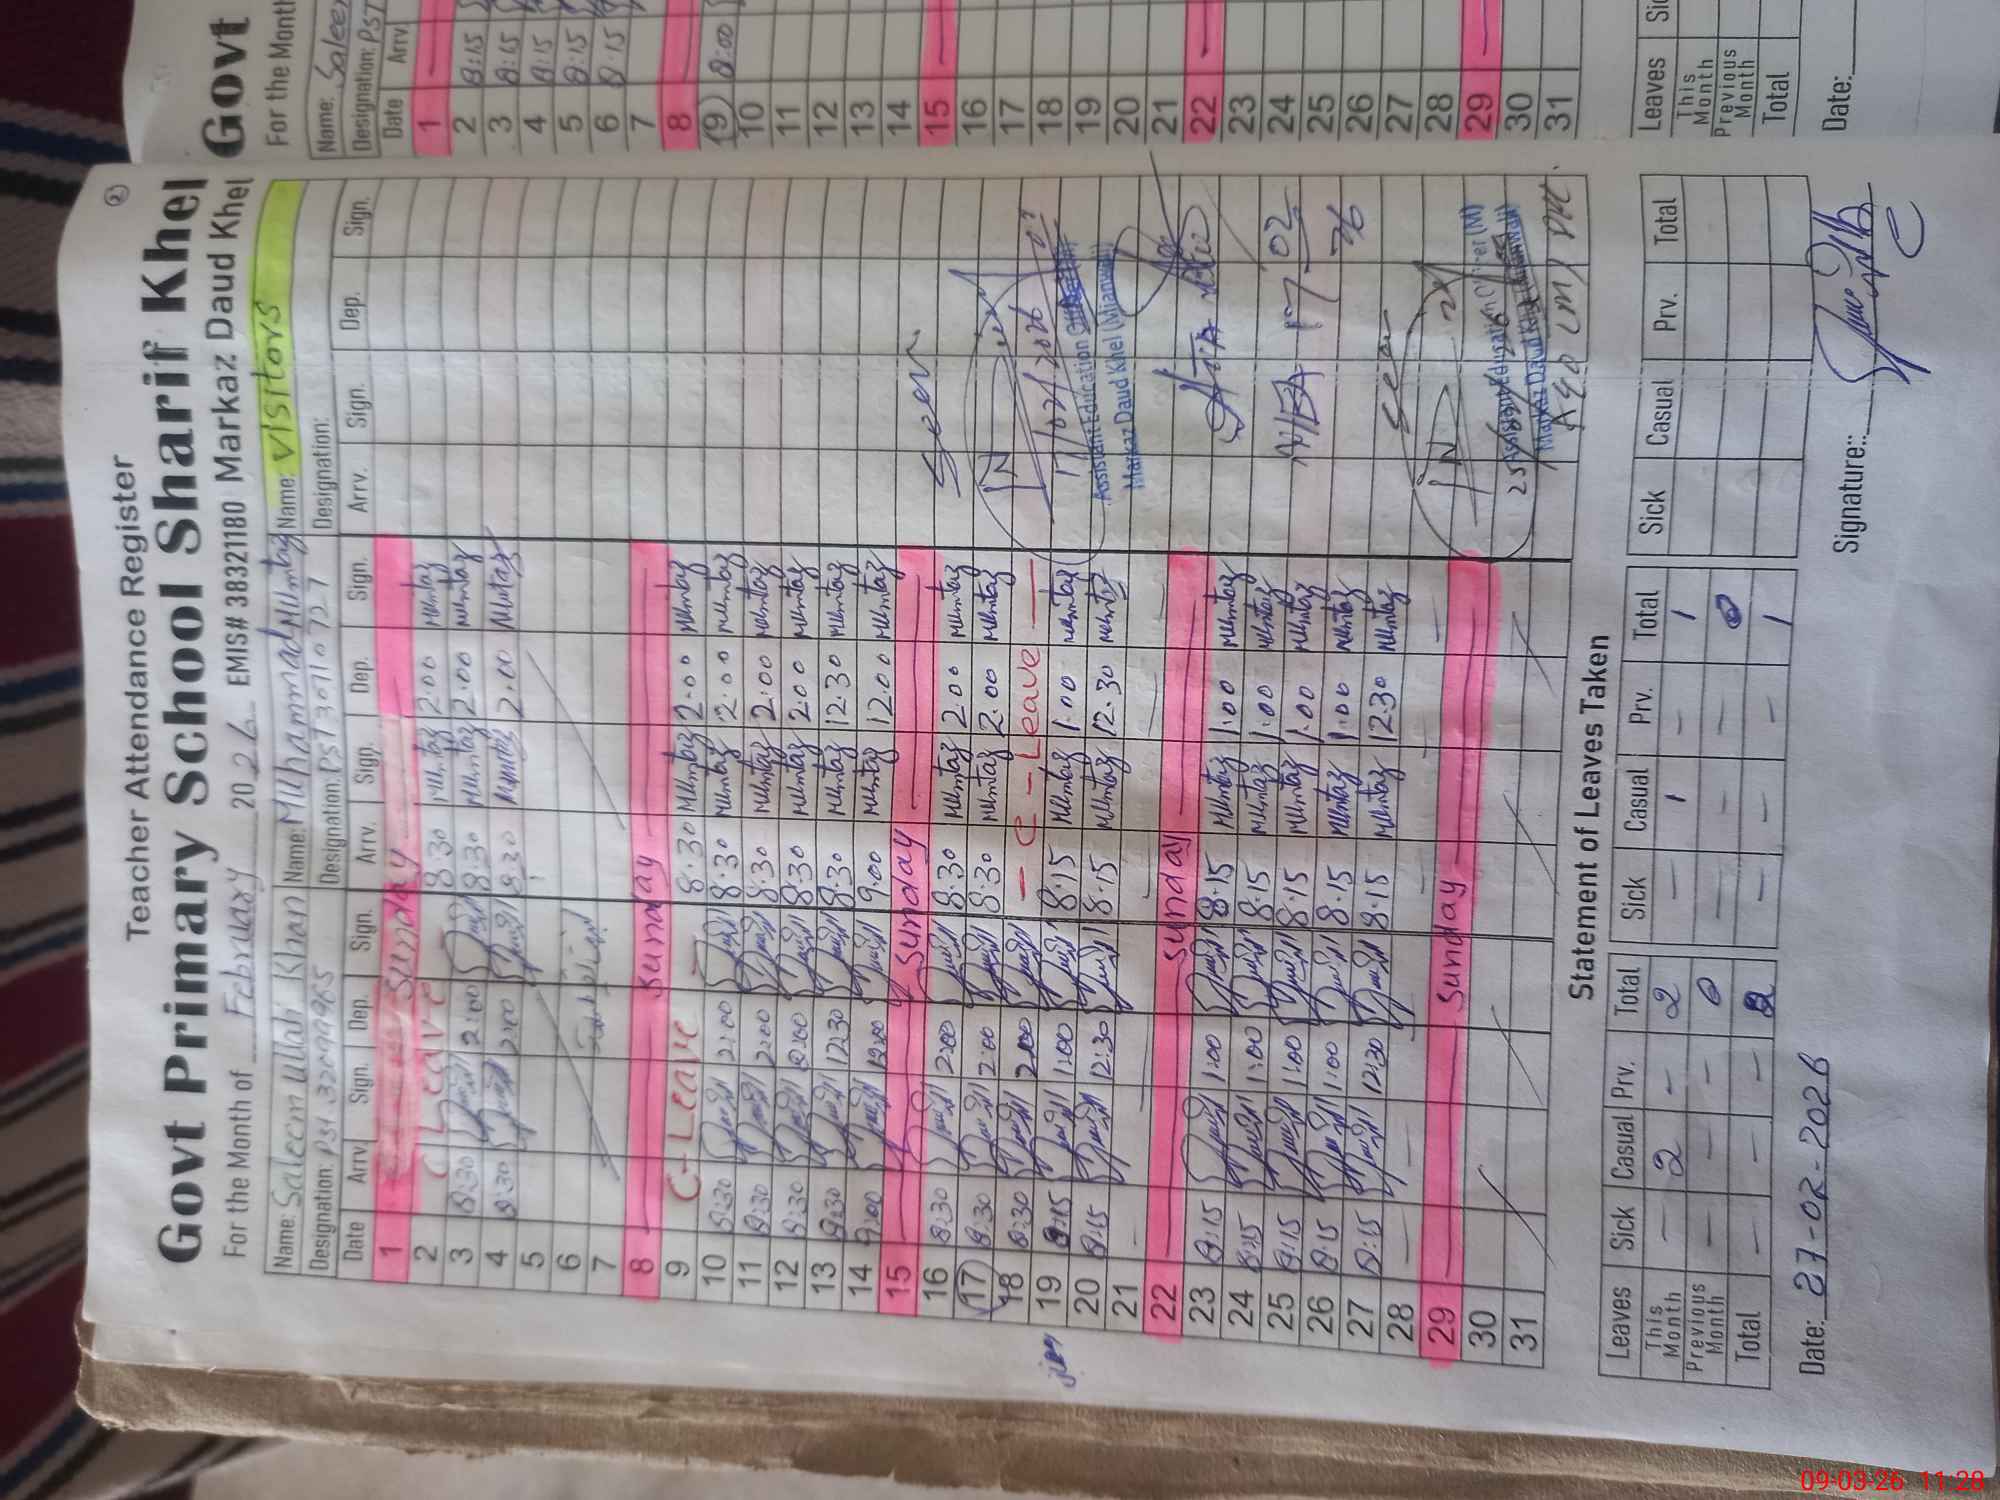 Teacher Attendance Register
Govt Primary School Sharif Khel
For the Month of February 2026 EMIS# 38321180 Markaz Daud Khel
Name: Saleem Ullah Khan Name: Muhammad Mumtaz Name: Visitors
Designation: PST Designation: PST Designation:
Date Arrv. Sign. Dep. Sign. Arrv. Sign. Dep. Sign. Arrv. Sign. Dep. Sign.
1 Sunday
2 C Leave 8.30 Mumtaz 2.00 Mumtaz
3 8:30 2:00 8.30 Mumtaz 2.00 Mumtaz
4 8:30 2:00 8.30 Mumtaz 2.00 Mumtaz
5
6
7
8 Sunday
9 C-Leave 8.30 Mumtaz 2.00 Mumtaz
10 8:30 2:00 8.30 Mumtaz 2.00 Mumtaz
11 8:30 2:00 8.30 Mumtaz 2.00 Mumtaz
12 8:30 2:00 8.30 Mumtaz 2.00 Mumtaz
13 8:30 12:30 8.30 Mumtaz 12.30 Mumtaz
14 9:00 12:00 9.00 Mumtaz 12.00 Mumtaz
15 Sunday
16 8:30 2:00 8.30 Mumtaz 2.00 Mumtaz Seen
17 8:30 2:00 8.30 Mumtaz 2.00 Mumtaz
18 8:30 2:00 C - Leave 17/02/2026
19 8:15 1:00 8.15 Mumtaz 1.00 Mumtaz Assistant Education
20 8:15 12:30 8.15 Mumtaz 12.30 Mumtaz Markaz Daud Khel (Mianwali)
21
22 Sunday
23 8:15 1:00 8.15 Mumtaz 1.00 Mumtaz
24 8:15 1:00 8.15 Mumtaz 1.00 Mumtaz
25 8:15 1:00 8.15 Mumtaz 1.00 Mumtaz MEA 17/02
26 8:15 1:00 8.15 Mumtaz 1.00 Mumtaz 26
27 8:15 12:30 8.15 Mumtaz 12.30 Mumtaz
28 Seen
29 Sunday
30 Assistant Education Officer (M)
31 Markaz Daud Khel
AEO (M) DK.
Statement of Leaves Taken
Leaves Sick Casual Prv. Total Sick Casual Prv. Total Sick Casual Prv. Total
This Month — 2 — 2 — 1 — 1
Previous Month — — — 0 — — — 0
Total — — — 2 — — — 1
Date: 27-02-2026 Signature:
Govt
For the Month
Name: Saleem
Designation: PST
Date Arrv
1
2 8:15
3 8:15
4 8:15
5 8:15
6 8:15
7
8
9 8:00
10
11
12
13
14
15
16
17
18
19
20
21
22
23
24
25
26
27
28
29
30
31
Leaves
This Month
Previous Month
Total
Date:
09-03-26 11:28